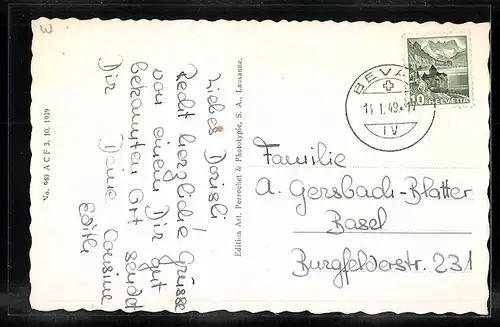 3
No. 940 A C F 3. 10. 1939
Liebes Dorisli
Recht herzliche Grüsse
von einem Dir gut
bekannten Ort sendet
Dir Deine Cousine
Edith
Edition Art. Perrochet & Phototypie, S. A., Lausanne.
BEVAIX
14. I. 49.
IV
10 HELVETIA
Familie
A. Gersbach-Blatter
Basel
Burgfelderstr. 231